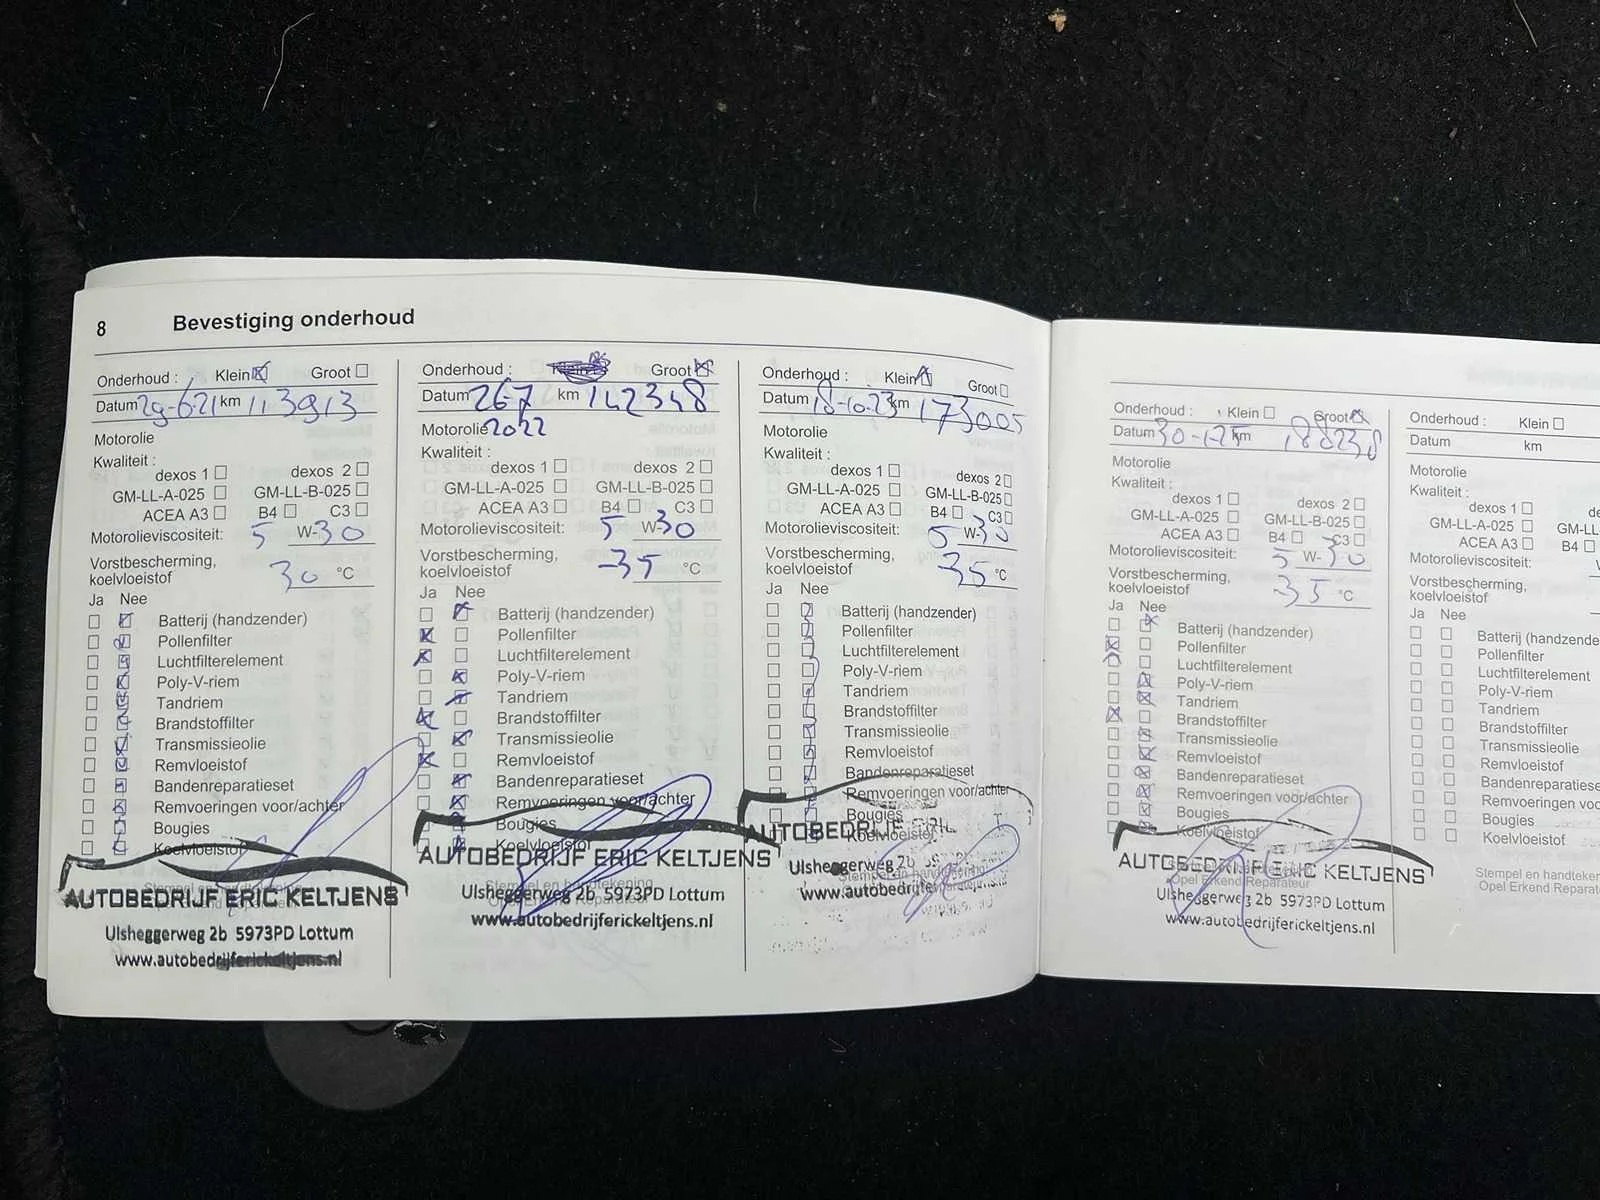 8 Bevestiging onderhoud
Onderhoud : Klein Groot
Datum 29-6-21 km 113913
Motorolie
Kwaliteit :
dexos 1 dexos 2
GM-LL-A-025 GM-LL-B-025
ACEA A3 B4 C3
Motorolieviscositeit: 5 W-30
Vorstbescherming,
koelvloeistof 30 °C
Ja Nee
Batterij (handzender)
Pollenfilter
Luchtfilterelement
Poly-V-riem
Tandriem
Brandstoffilter
Transmissieolie
Remvloeistof
Bandenreparatieset
Remvoeringen voor/achter
Bougies
Koelvloeistof
AUTOBEDRIJF ERIC KELTJENS
Ulsheggerweg 2b 5973PD Lottum
www.autobedrijferickeltjens.nl
Onderhoud : Klein Groot
Datum 26-7 km 142348
Motorolie 2022
Kwaliteit :
dexos 1 dexos 2
GM-LL-A-025 GM-LL-B-025
ACEA A3 B4 C3
Motorolieviscositeit: 5 W-30
Vorstbescherming,
koelvloeistof -35 °C
Ja Nee
Batterij (handzender)
Pollenfilter
Luchtfilterelement
Poly-V-riem
Tandriem
Brandstoffilter
Transmissieolie
Remvloeistof
Bandenreparatieset
Remvoeringen voor/achter
Bougies
Koelvloeistof
AUTOBEDRIJF ERIC KELTJENS
Stempel en handtekening
Ulsheggerweg 2b 5973PD Lottum
www.autobedrijferickeltjens.nl
Onderhoud : Klein Groot
Datum 18-10-23 km 173005
Motorolie
Kwaliteit :
dexos 1 dexos 2
GM-LL-A-025 GM-LL-B-025
ACEA A3 B4 C3
Motorolieviscositeit: 5 W-30
Vorstbescherming,
koelvloeistof -35 °C
Ja Nee
Batterij (handzender)
Pollenfilter
Luchtfilterelement
Poly-V-riem
Tandriem
Brandstoffilter
Transmissieolie
Remvloeistof
Bandenreparatieset
Remvoeringen voor/achter
Bougies
Koelvloeistof
AUTOBEDRIJF
Ulsheggerweg 2b
www.autobedrijfe
Onderhoud : Klein Groot
Datum 30-1-25 km 188238
Motorolie
Kwaliteit :
dexos 1 dexos 2
GM-LL-A-025 GM-LL-B-025
ACEA A3 B4 C3
Motorolieviscositeit: 5 W-30
Vorstbescherming,
koelvloeistof -35 °C
Ja Nee
Batterij (handzender)
Pollenfilter
Luchtfilterelement
Poly-V-riem
Tandriem
Brandstoffilter
Transmissieolie
Remvloeistof
Bandenreparatieset
Remvoeringen voor/achter
Bougies
Koelvloeistof
AUTOBEDRIJF ERIC KELTJENS
Opel Erkend Reparateur
Ulsheggerweg 2b 5973PD Lottum
www.autobedrijferickeltjens.nl
Onderhoud : Klein
Datum km
Motorolie
Kwaliteit :
dexos 1 de
GM-LL-A-025 GM-LL
ACEA A3 B4
Motorolieviscositeit:
Vorstbescherming,
koelvloeistof
Ja Nee
Batterij (handzende
Pollenfilter
Luchtfilterelement
Poly-V-riem
Tandriem
Brandstoffilter
Transmissieolie
Remvloeistof
Bandenreparatieset
Remvoeringen voo
Bougies
Koelvloeistof
Stempel en handteken
Opel Erkend Reparat